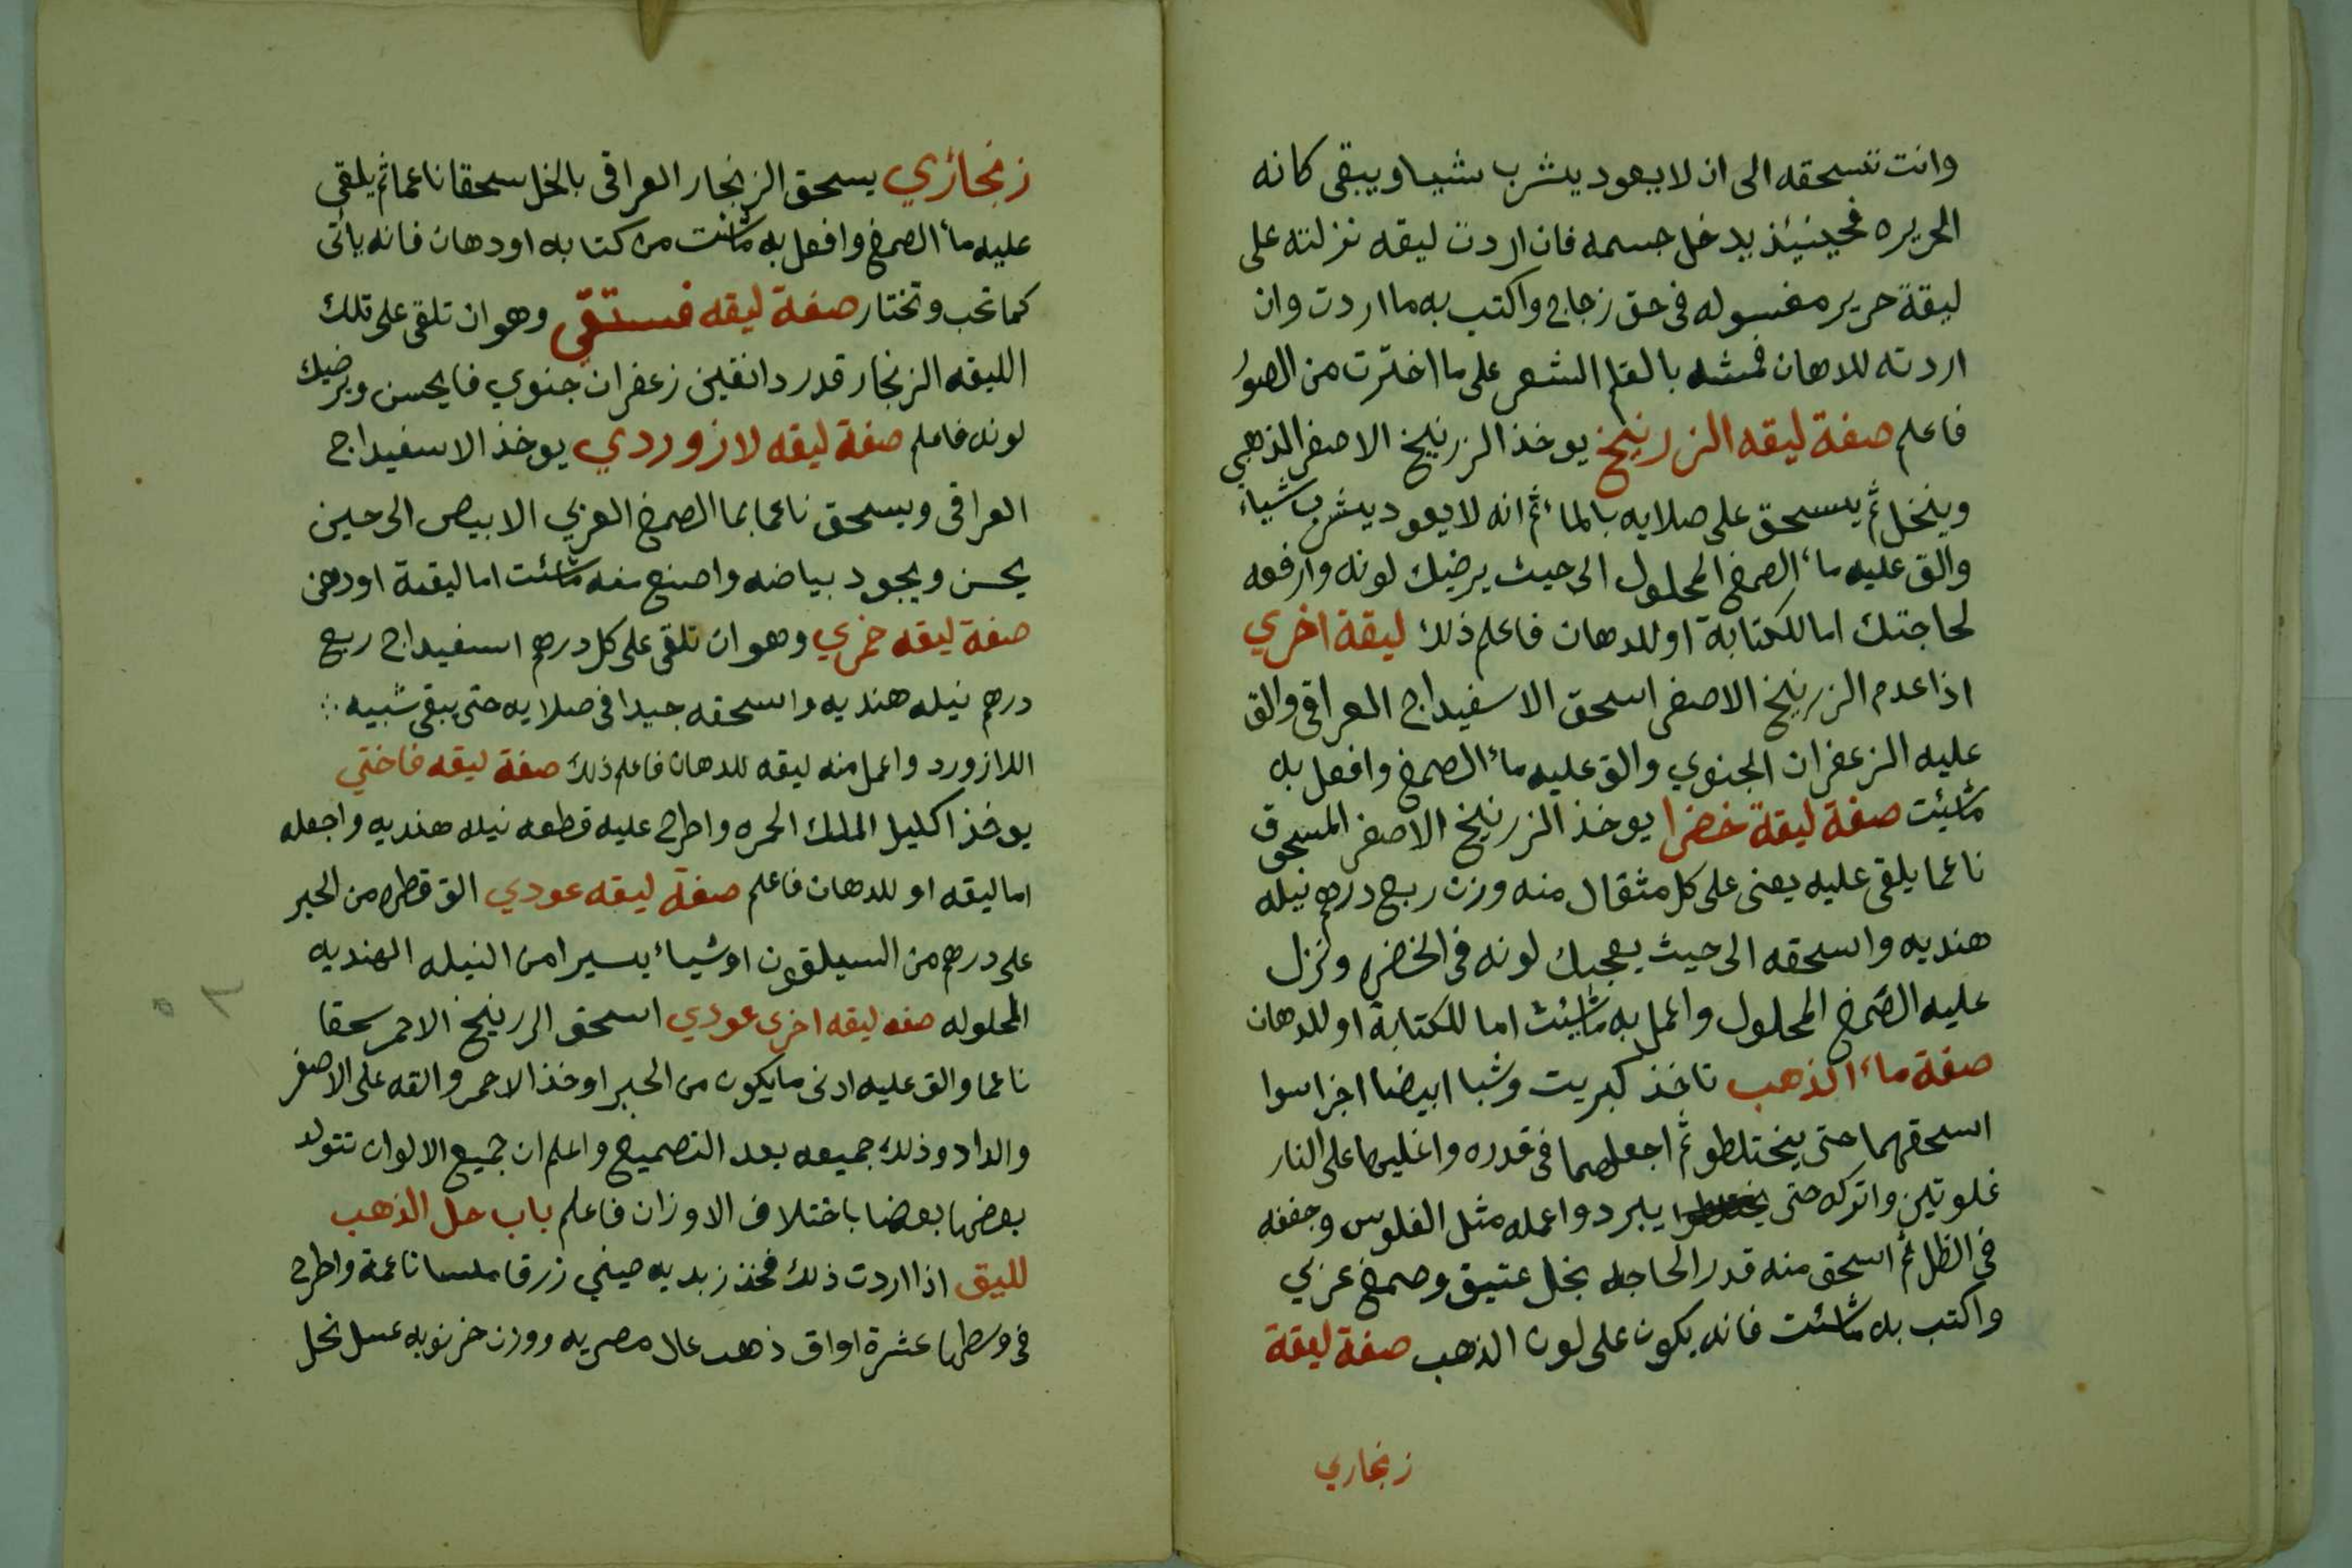 وانت تسحقه الى ان لا يعود يشرب شيا ويبقى كانه
الحريره فحينئذ يدخل جسمه فان اردت ليقه نزلته على
ليقة حرير مغسوله فى حق زجاج واكتب به ما اردت وان
اردته للدهان فمشه بالقلم الشعر على ما اخترت من الصور
فاعلم صفة ليقه الزرنيخ يوخذ الزرنيخ الاصفر الذهبي
وينخل ثم يسحق على صلايه بالماء ثم انه لا يعود يشرب شياء
والق عليه ماء الصمغ المحلول الى حيث يرضيك لونه وارفعه
لحاجتك اما للكتابة او للدهان فاعلم ذلك ليقة اخري
اذا عدم الزرنيخ الاصفر اسحق الاسفيداج العراقى والق
عليه الزعفران الجنوي والق عليه ماء الصمغ وافعل به
ماشيئت صفة ليقة خضرا يوخذ الزرنيخ الاصفر المسحوق
ناعما يلقى عليه يعنى على كل مثقال منه وزن ربع درهم نيله
هنديه واسحقه الى حيث يعجبك لونه فى الخضره ونزل
عليه الصمغ المحلول واعمل به ماشيئت اما للكتابة او للدهان
صفة ماء الذهب تاخذ كبريت وشبا ابيضا اجزا سوا
اسحقهما حتى يختلطو ثم اجعلهما فى قدره واغليها على النار
غلوتين واتركه حتى يبرد واعمله مثل الفلوس وجففه
فى الظل ثم اسحق منه قدر الحاجه بخل عتيق وصمغ عربي
واكتب به ماشئت فانه يكون على لون الذهب صفة ليقة
زنجاري
زنجاري يسحق الزنجار العراقى بالخل سحقا ناعما ثم يلقى
عليه ماء الصمغ وافعل به ماشئت من كتابه او دهان فانه ياتى
كما تحب وتختار صفة ليقه فستقى وهو ان تلقى على تلك
الليقه الزنجار قدر دانقين زعفران جنوي فايحسن ويرضيك
لونه فاعلم صفة ليقه لازوردي يوخذ الاسفيداج
العراقى ويسحق ناعما بما الصمغ العربي الابيض الى حين
يحسن ويجود بياضه واصنع منه ماشئت اما ليقة او دهن
صفة ليقه خمري وهو ان تلقى على كل درهم اسفيداج ربع
درهم نيله هنديه واسحقه جيدا فى صلايه حتى يبقى شبيه
اللازورد واعمل منه ليقه للدهان فاعلم ذلك صفة ليقه فاختي
يوخذ اكليل الملك الحمره واطرح عليه قطعه نيله هنديه واجعله
اما ليقه او للدهان فاعلم صفة ليقه عودي الق قطره من الحبر
على درهم من السيلقون او شياء يسيرا من النيله الهنديه
المحلوله صفه ليقه اخرى عودي اسحق الزرنيخ الاحمر سحقا
ناعما والق عليه ادنى ما يكون من الحبر او خذ الاحمر والقه على الاصفر
والداد وذلك جميعه بعد التصميغ واعلم ان جميع الالوان تتولد
بعضها بعضا باختلاف الاوزان فاعلم باب حل الذهب
لليق اذا اردت ذلك فخذ زبديه صيني زرقا ملسا ناعمة واطرح
فى وسطها عشرة اواق ذهب عال مصريه ووزن خرنوبه عسل نحل